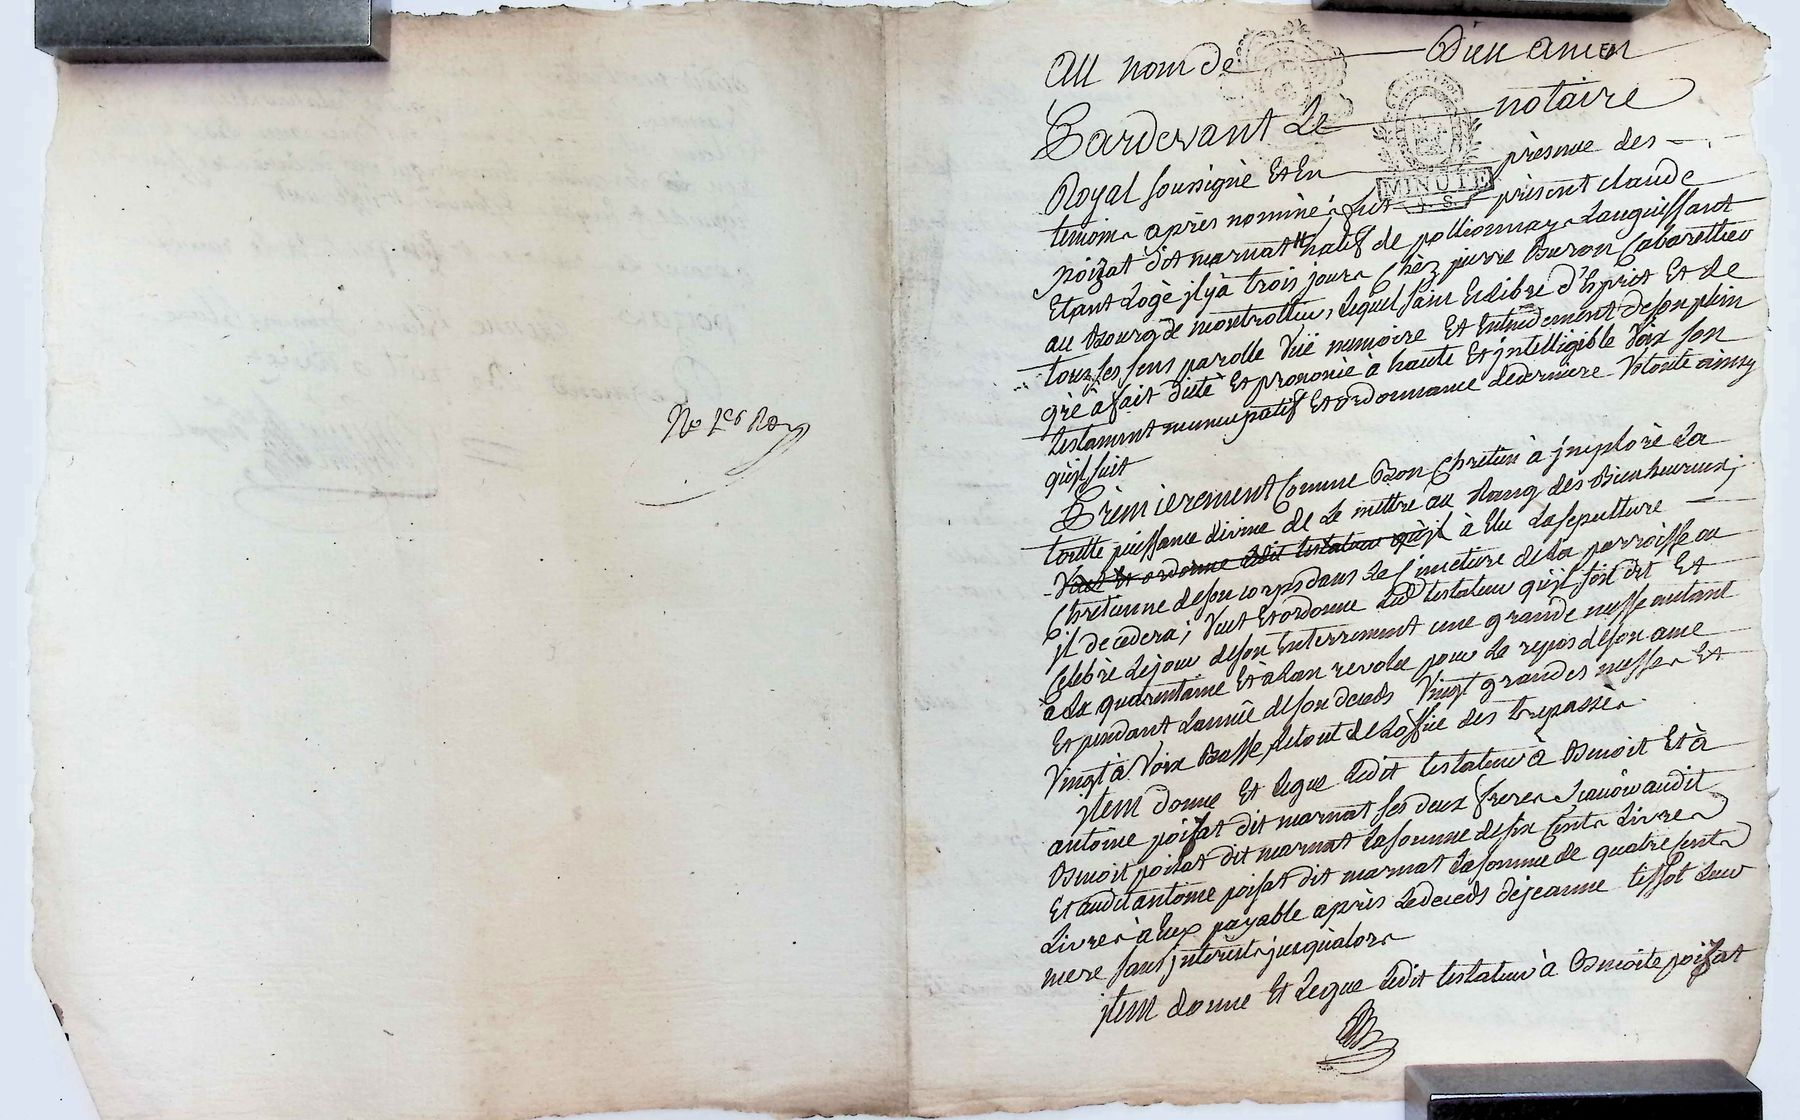 Au nom de Dieu amen
Pardevant Le notaire
Royal soussigné Et En présence des
temoins après nommé, fut présent claude
poizat dit marnat natif de pollionnay Languissant
Etant Logé il y à trois jours Chéz pierre Buron Cabarettier
au Bourg de montrottier, Lequel sain Et Libre d'Esprit Et de
tous ses sens parolle Vuë memoire Et Entendement de son plein
gré à fait dicté Et prononcé à haute Et jntelligible Voix son
testament nuncupatif Et ordonnance de derniere Volonté ainsy
qu'il suit
Prémierement Comme Bon Chretien à jmploré La
toutte puissance divine de Le mettre au Rang des Bienheureux;
Veut Et ordonne Ledit testateur qu'il à Elu La sepulture
Chretienne de son corps dans Le Cimetiere de La parroisse ou
jl decedera; Veut Et ordonne Led testateur qu'il soit dit Et
Celebré Le jour de son Enterrement une grande messe autant
à La quarantaine Et à Lan revolu pour Le repos de son ame
Et pendant L'année de son deceds Vingt grandes messes Et
Vingt à Voix Basse Le tout de Loffice des trepassés
jtem donne Et Legue Ledit testateur à Benoit Et à
antoine poizat dit marnat ses deux freres sçavoir audit
Benoit poizat dit marnat La somme de six Cents Livres
Et audit antoine poizat dit marnat La somme de quatre sents
Livres à Eux payable après Le deceds de jeanne tissot Leur
mere sans jnterêts jusqu'alors
jtem donne Et Legue Ledit testateur à Benoite poizat
MINUTE